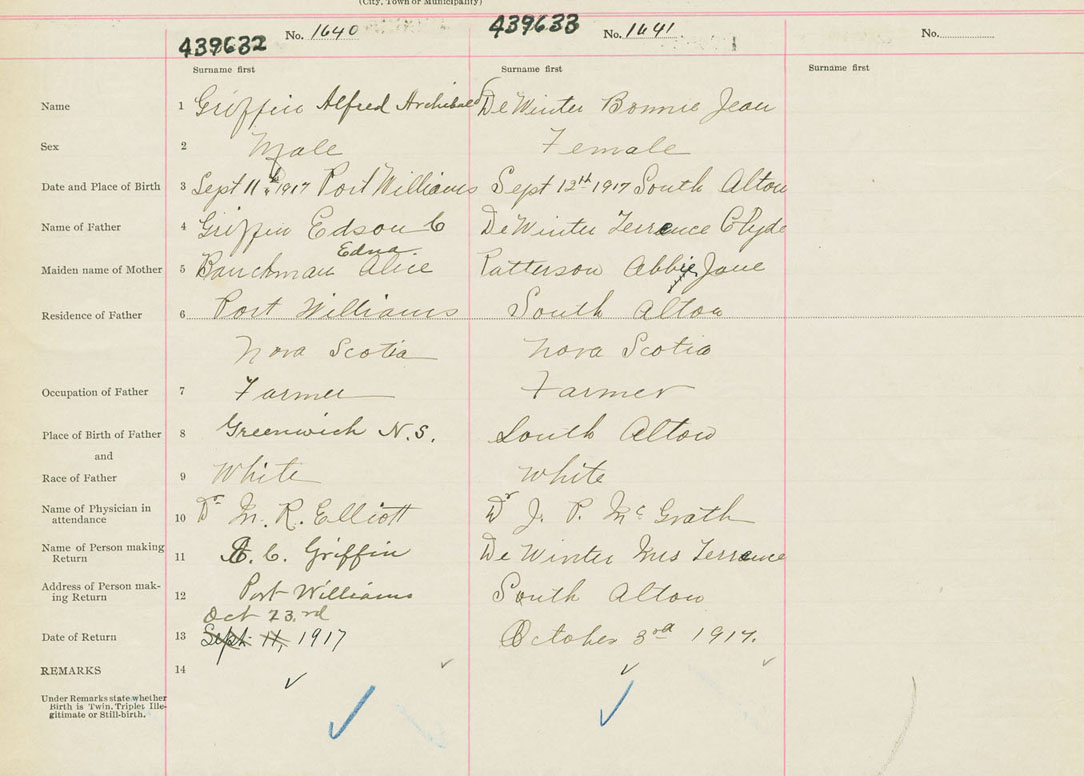 (City, Town or Municipality)
439632 No. 1640 439633 No. 1641 No.
Surname first Surname first Surname first
Name 1 Griffin Alfred Archibald DeWinter Bonnie Jean
Sex 2 Male Female
Date and Place of Birth 3 Sept 11th 1917 Port Williams Sept 12th 1917 South Alton
Name of Father 4 Griffin Edson C DeWinter Terrence Clyde
Edna
Maiden name of Mother 5 Bauckman Alice Patterson Abbie Jane
Residence of Father 6 Port Williams South Alton
Nova Scotia Nova Scotia
Occupation of Father 7 Farmer Farmer
Place of Birth of Father 8 Greenwich N.S. South Alton
and
Race of Father 9 White White
Name of Physician in attendance 10 Dr M. R. Elliott Dr J. P. McGrath
Name of Person making Return 11 E. C. Griffin DeWinter Mrs Terrence
Address of Person making Return 12 Port Williams South Alton
Oct 23rd
Date of Return 13 Sept. 11, 1917 October 3rd 1917.
REMARKS 14
Under Remarks state whether
Birth is Twin, Triplet Ille-
gitimate or Still-birth.